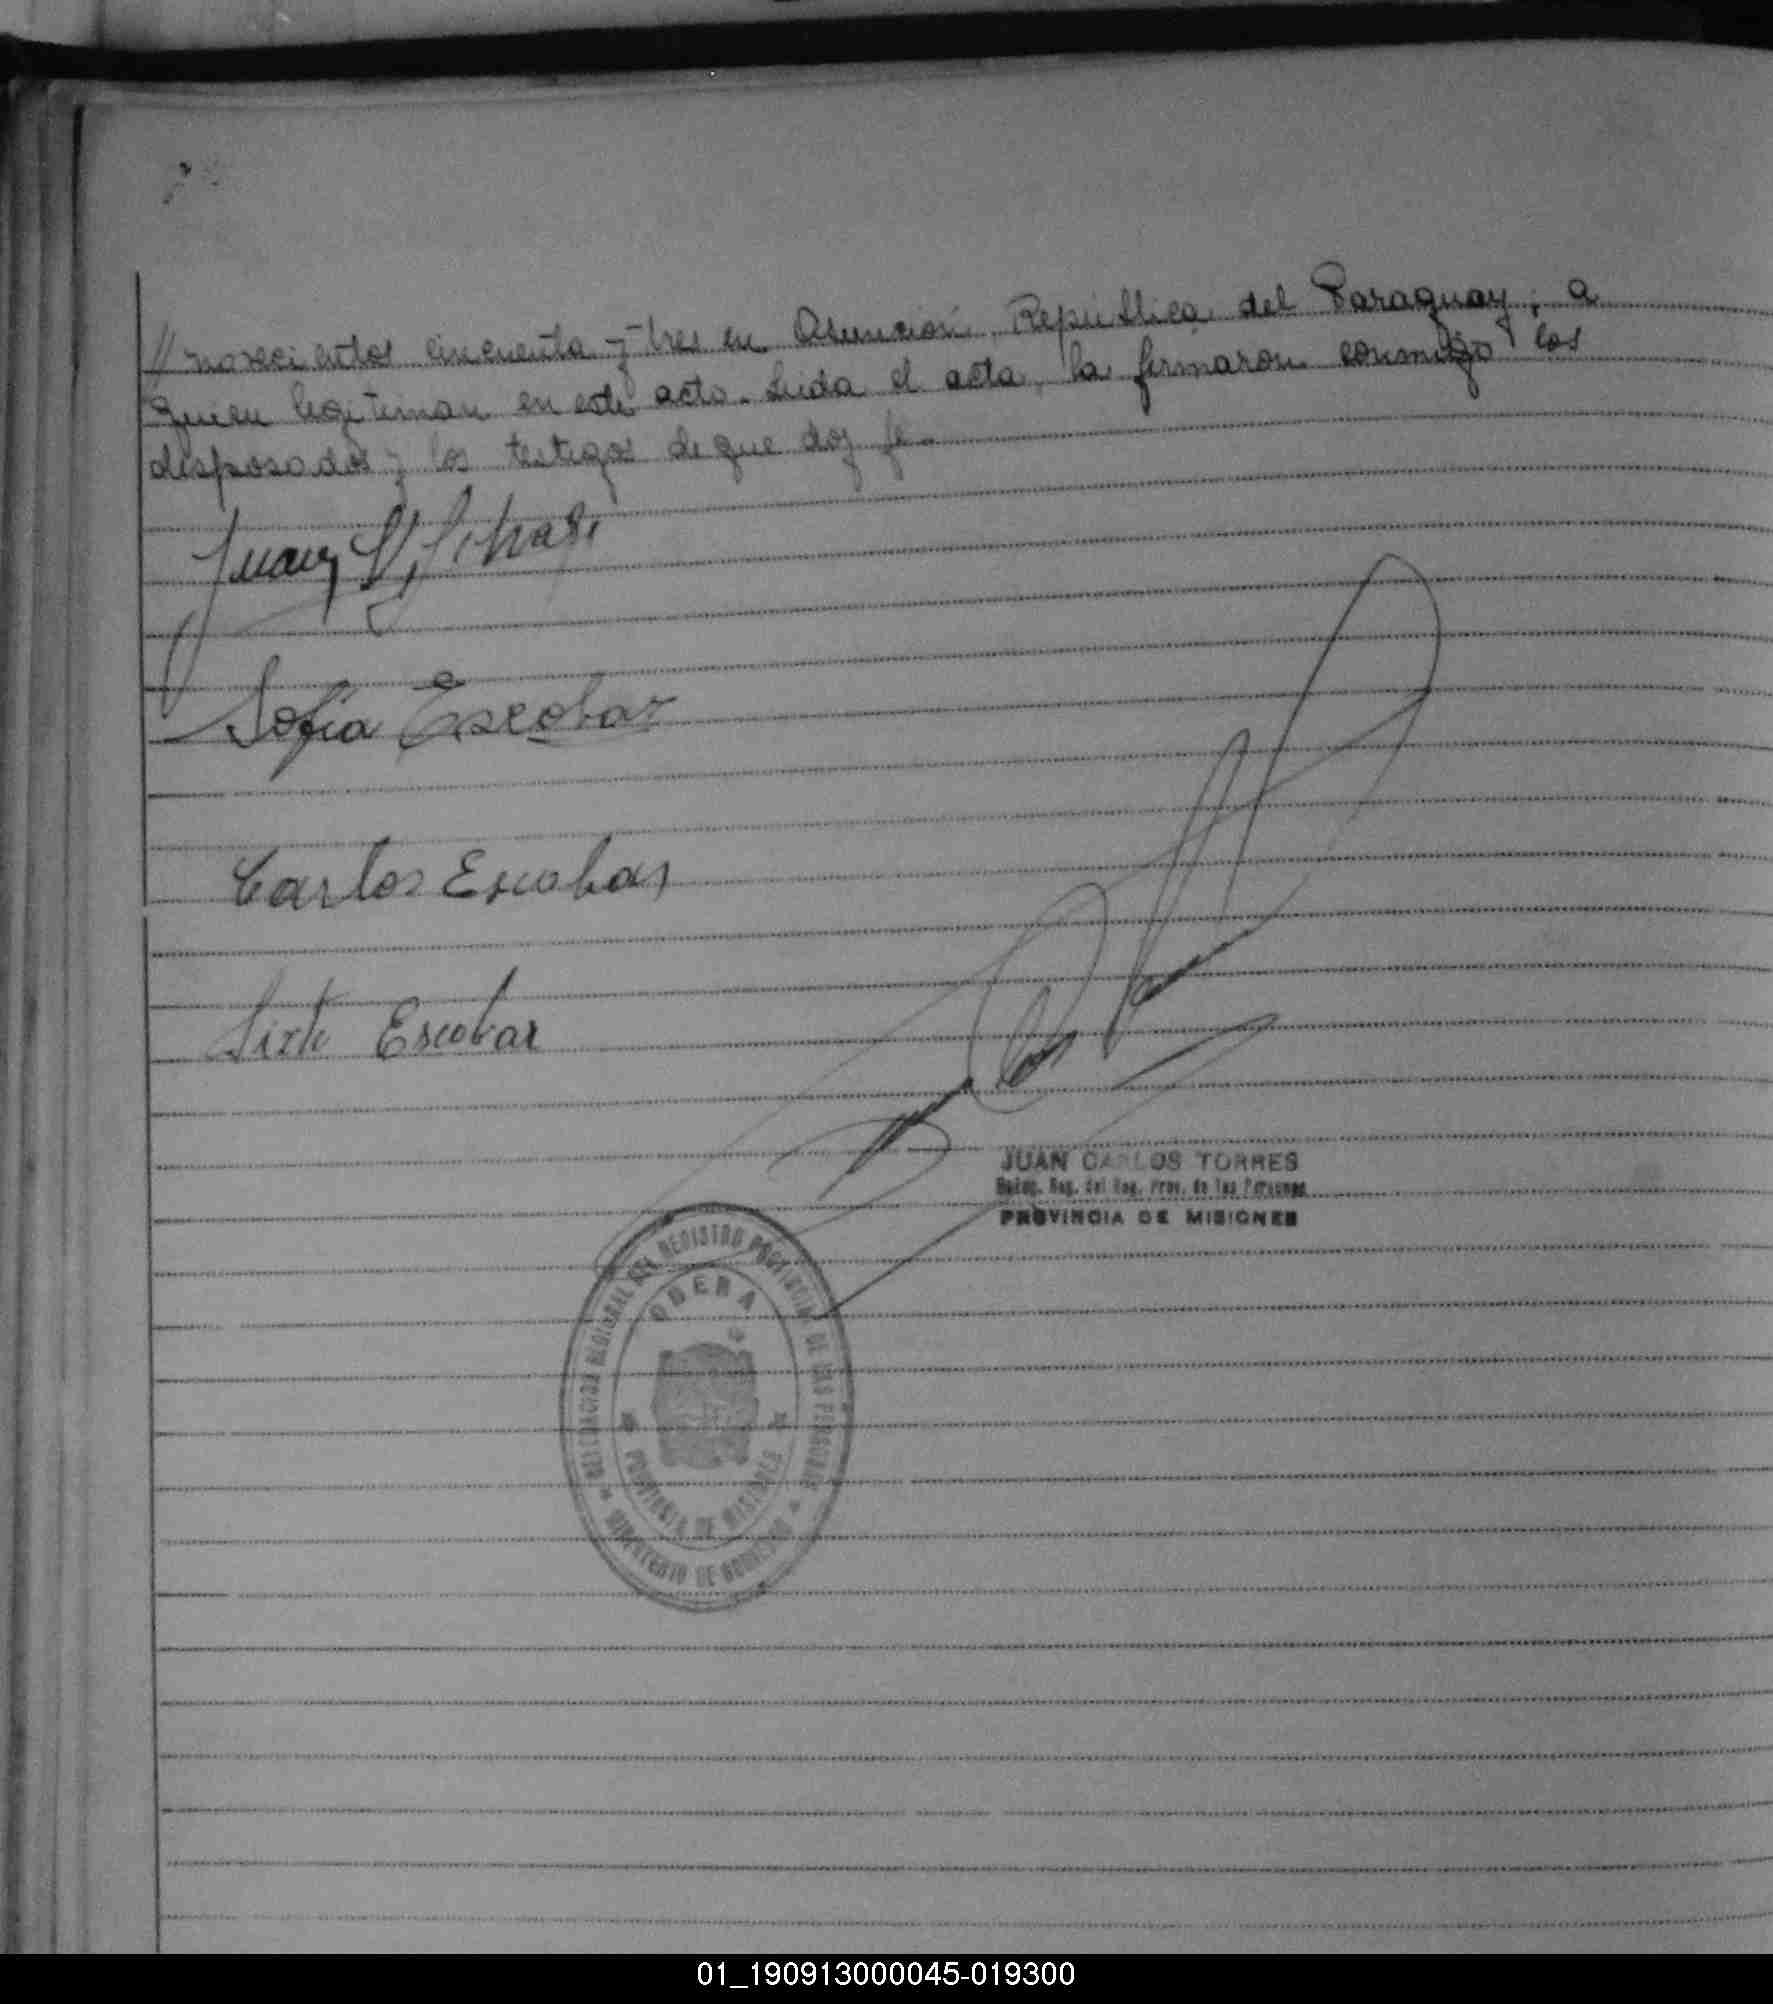 // novecientos cincuenta y tres en Asunción, República del Paraguay; a
quien legitiman en este acto. Leida el acta, la firmaron conmigo los
desposados y los testigos de que doy fe.-
Juan
Sofia Escobar
Carlos Escobar
Sixto Escobar
JUAN CARLOS TORRES
Deleg. Reg. del Reg. Prov. de las Personas
PROVINCIA DE MISIONES
DELEGACION REGIONAL DEL REGISTRO PROVINCIAL DE LAS PERSONAS
OBERA
PROVINCIA DE MISIONES
MINISTERIO DE GOBIERNO
01_190913000045-019300